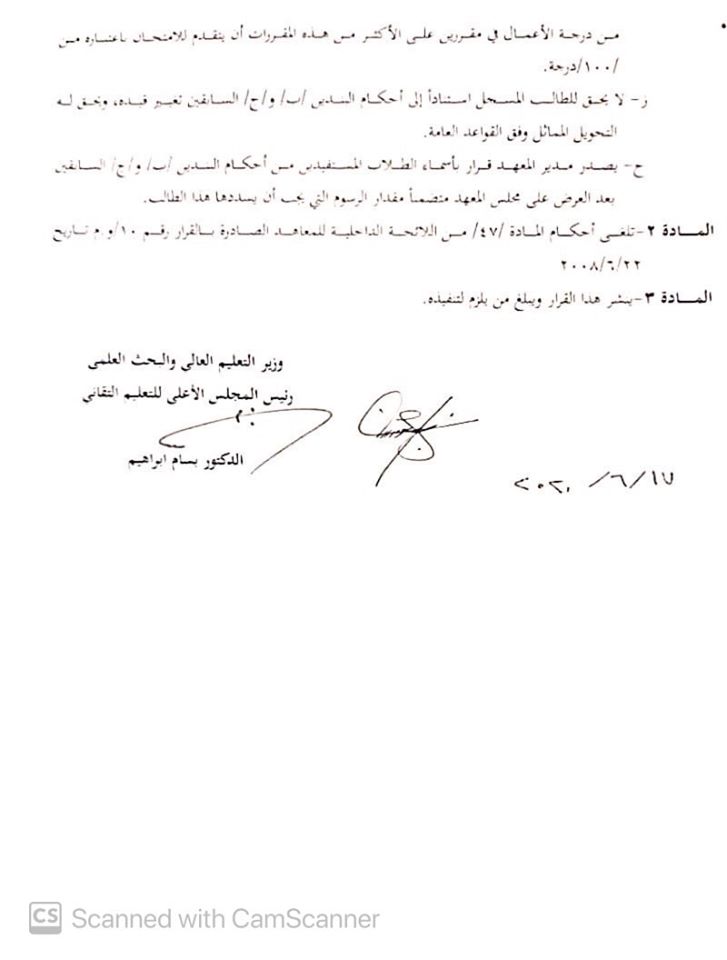 من درجة الأعمال في مقررين على الأكثر من هذه المقررات أن يتقدم للامتحان باعتباره من
/١٠٠/درجة.
ز- لا يحق للطالب المسجل استناداً إلى أحكام البندين /ب/ و/ج/ السابقين تغيير قيده، ويحق له
التحويل المماثل وفق القواعد العامة.
ح- يصدر مدير المعهد قرار بأسماء الطلاب المستفيدين من أحكام البندين /ب/ و/ج/ السابقين
بعد العرض على مجلس المعهد متضمناً مقدار الرسوم التي يجب أن يسددها هذا الطالب.
المادة ٢-تلغى أحكام المادة /٤٧/ من اللائحة الداخلية للمعاهد الصادرة بالقرار رقم ١٠/و م تاريخ
٢٠٠٨/٦/٢٢
المادة ٣-ينشر هذا القرار ويبلغ من يلزم لتنفيذه.
وزير التعليم العالي والبحث العلمي
رئيس المجلس الأعلى للتعليم التقاني
الدكتور بسام ابراهيم
١٧/ ٦/ ٢٠٢٠
CS Scanned with CamScanner